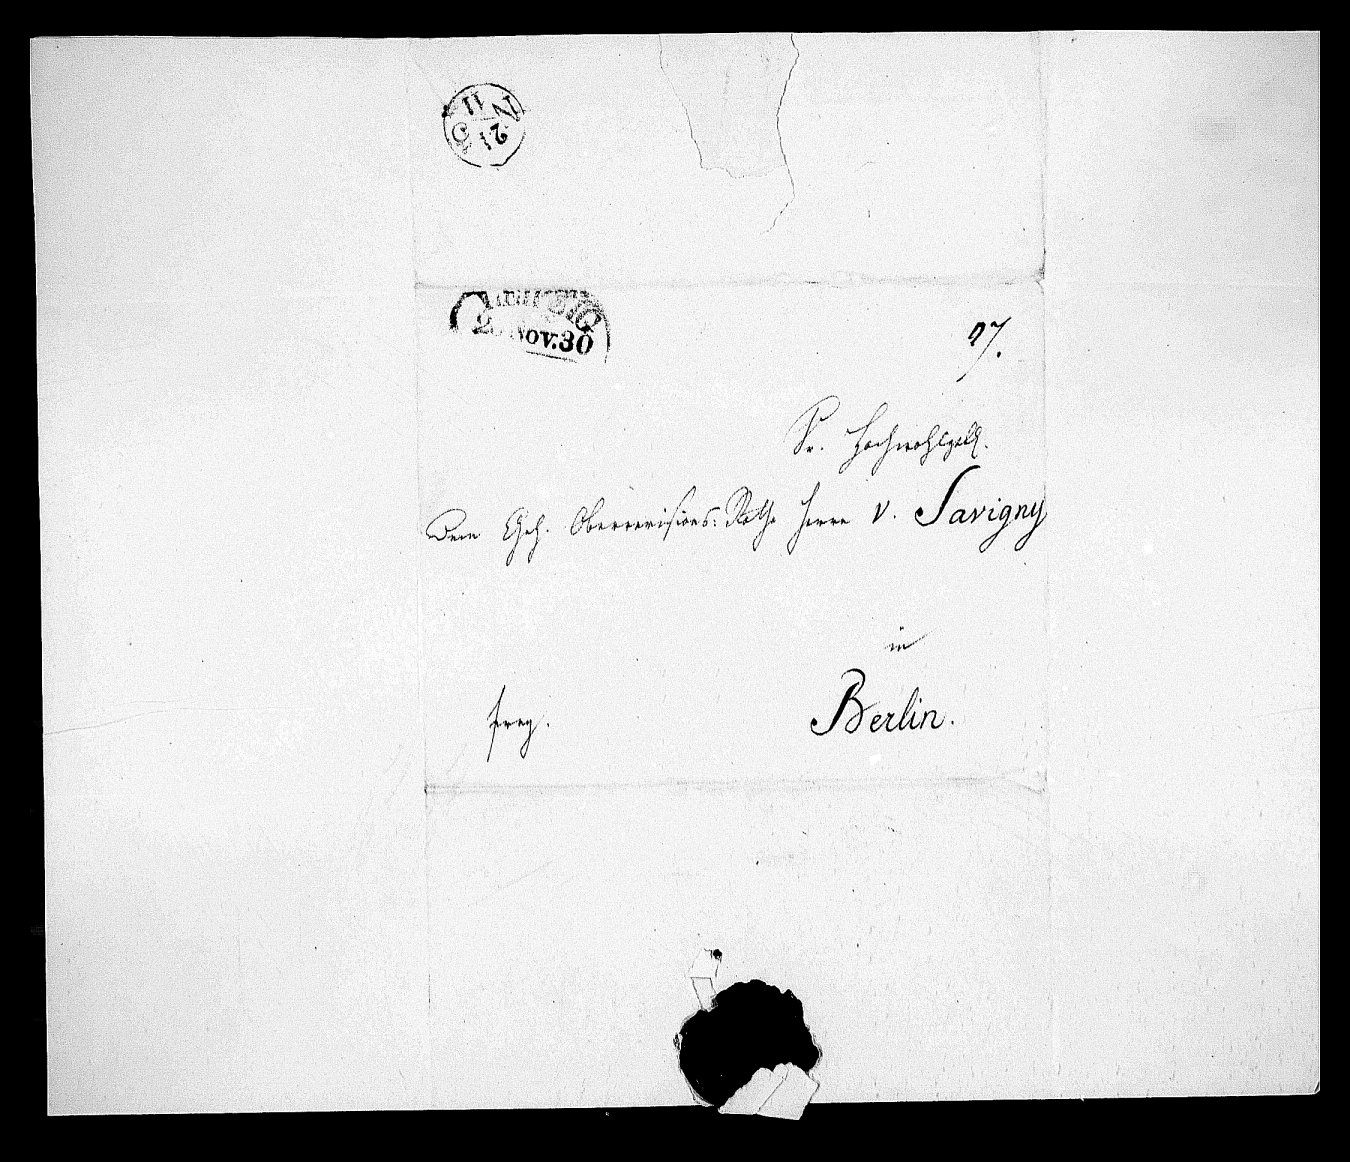 N 11
21
2 Nov. 30
97.
Sr. Hochwohlgeb.
Dem Geh. Oberrevisions: Rathe Herrn v. Savigny
in
frey.
Berlin.